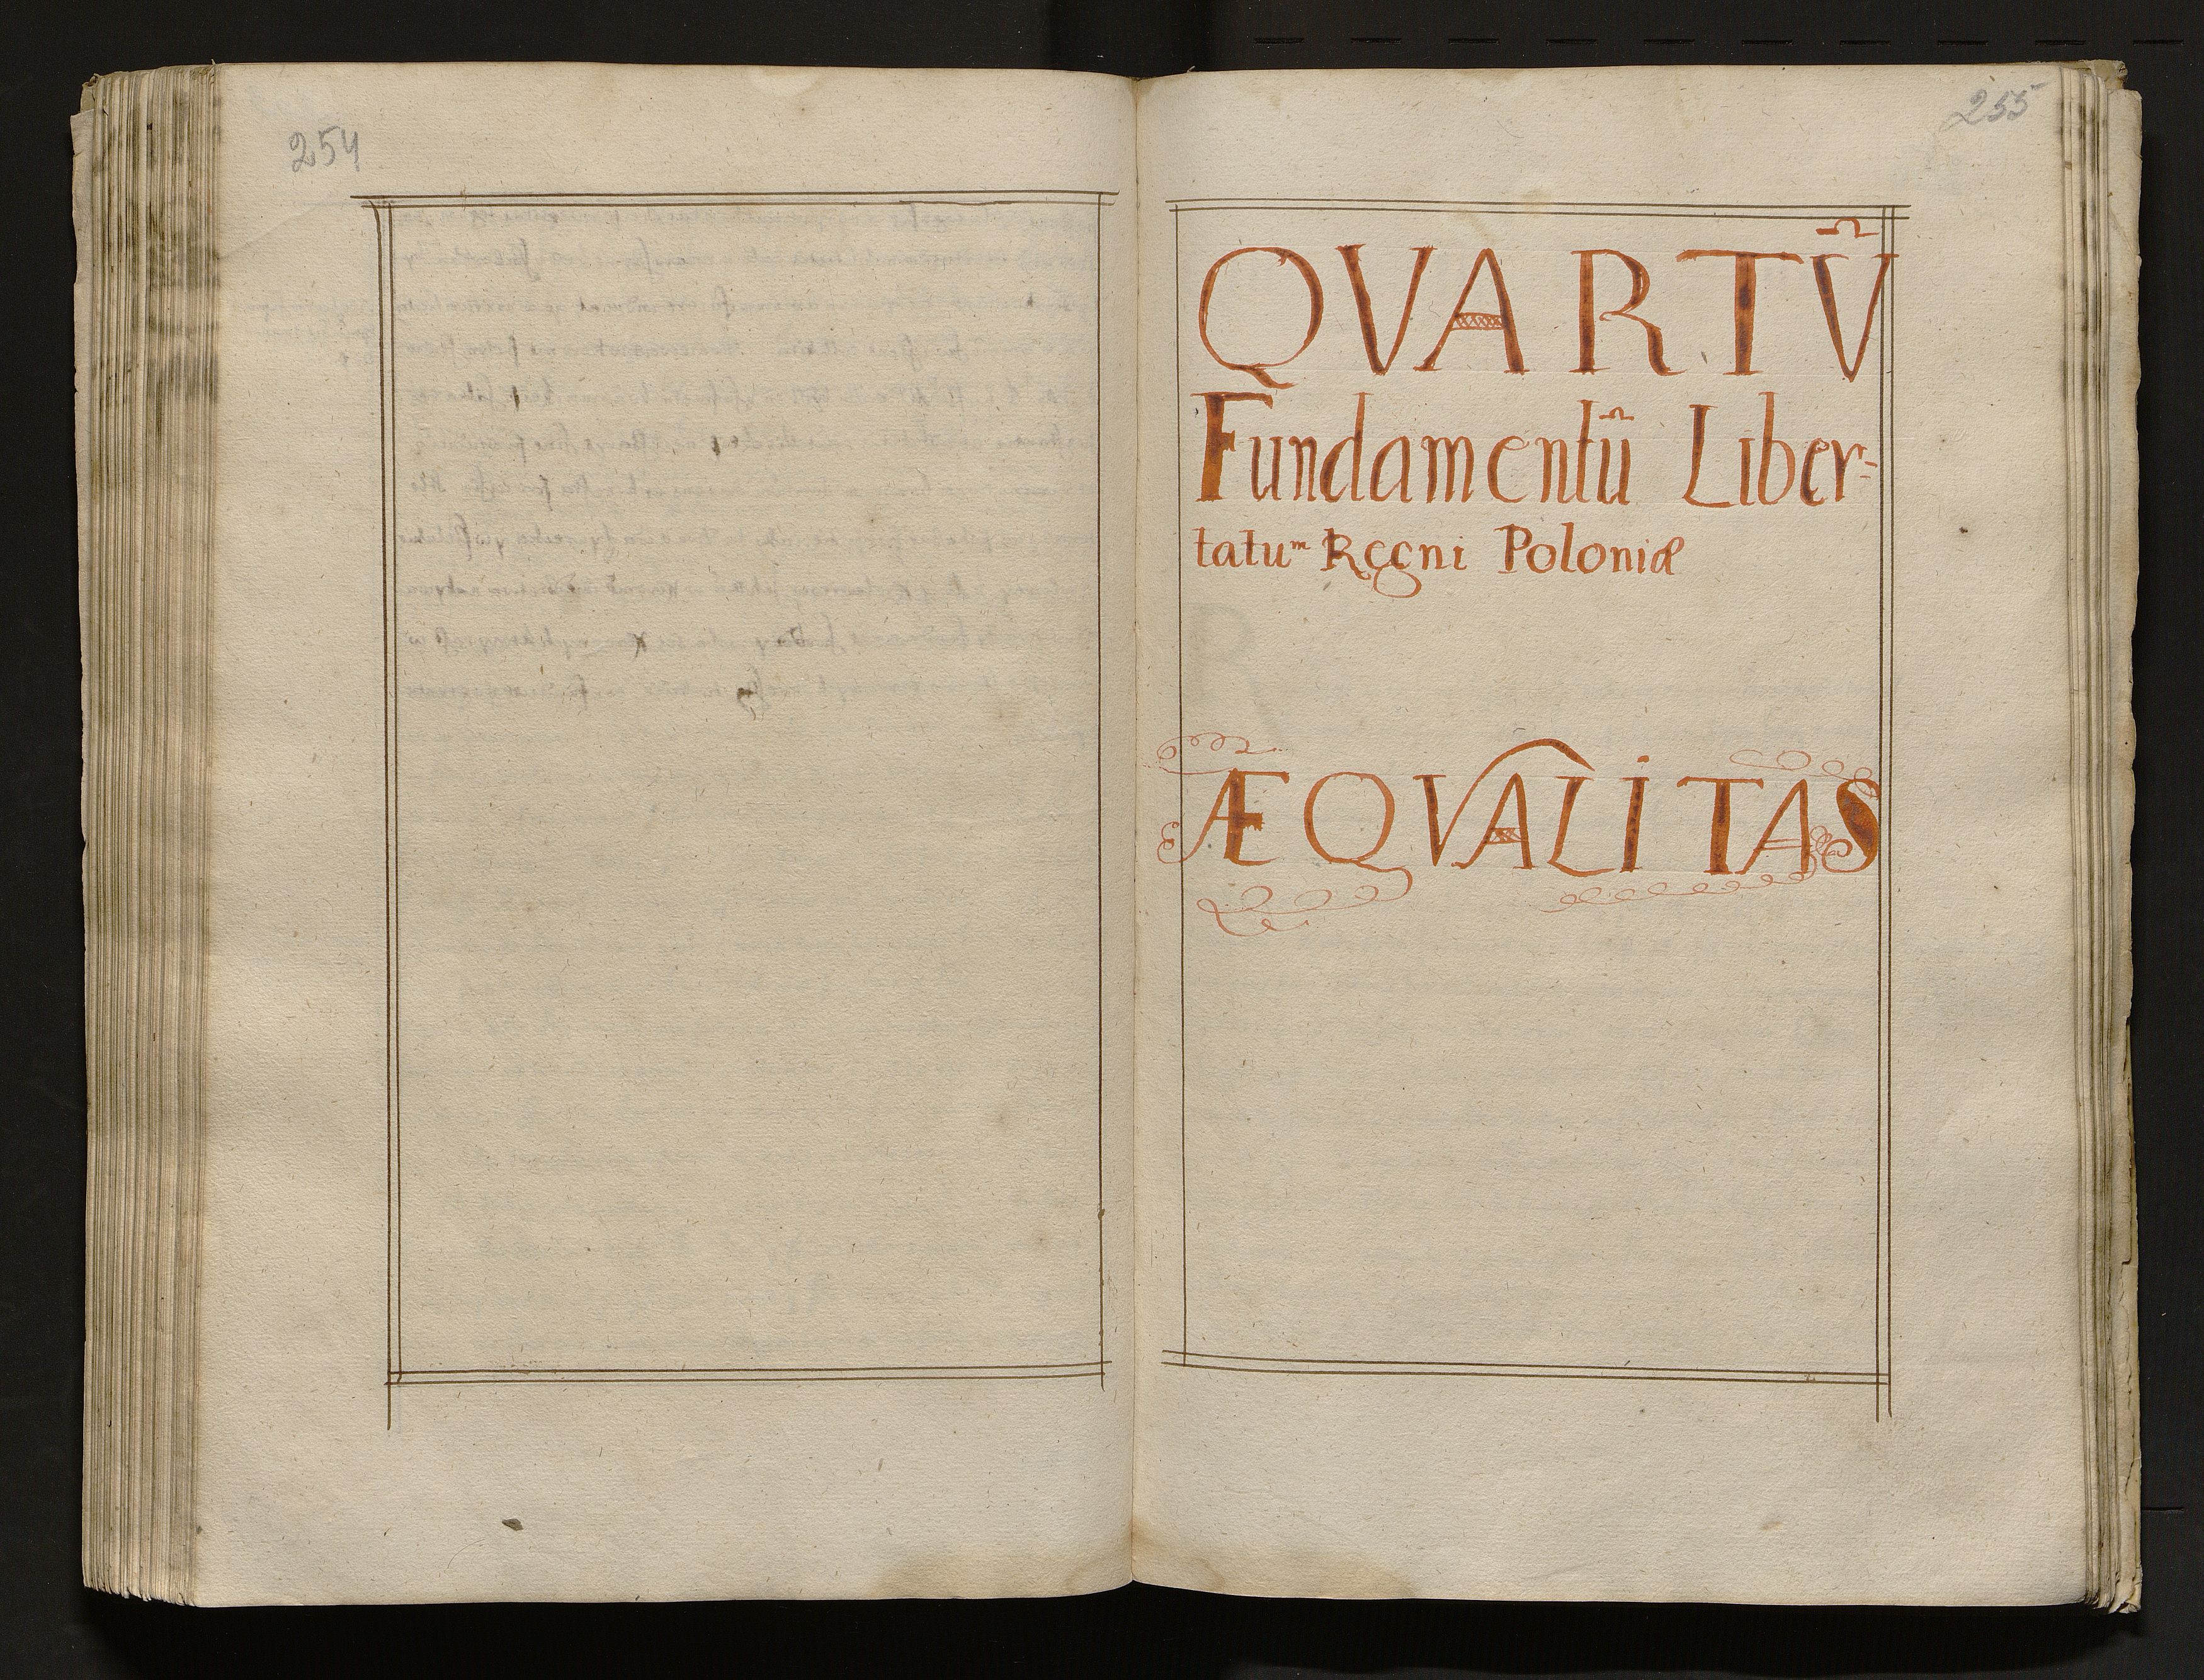 254
255
QVARTṼ
Fundamentũ Liber-
tatuᵐ Regni Poloniæ
ÆQVALITAS